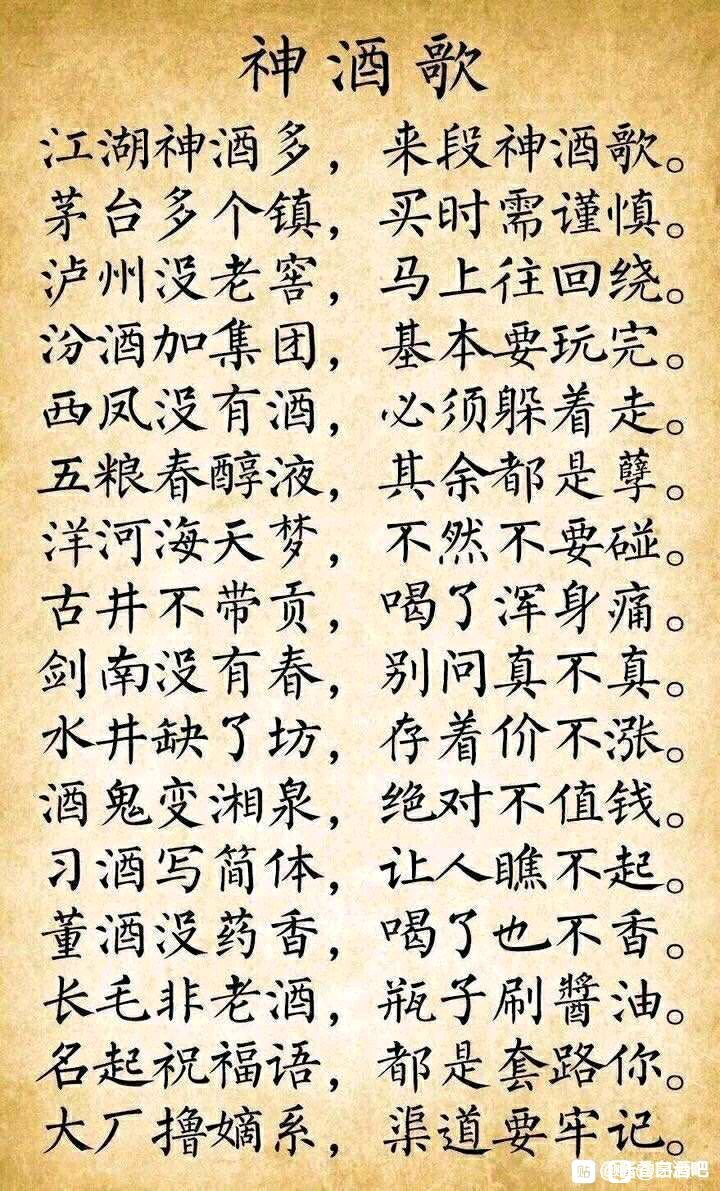 神酒歌
江湖神酒多，来段神酒歌。
茅台多个镇，买时需谨慎。
泸州没老窖，马上往回绕。
汾酒加集团，基本要玩完。
西凤没有酒，必须躲着走。
五粮春醇液，其余都是孽。
洋河海天梦，不然不要碰。
古井不带贡，喝了浑身痛。
剑南没有春，别问真不真。
水井缺了坊，存着价不涨。
酒鬼变湘泉，绝对不值钱。
习酒写简体，让人瞧不起。
董酒没药香，喝了也不香。
长毛非老酒，瓶子刷醬油。
名起祝福语，都是套路你。
大厂撸嫡系，渠道要牢记。